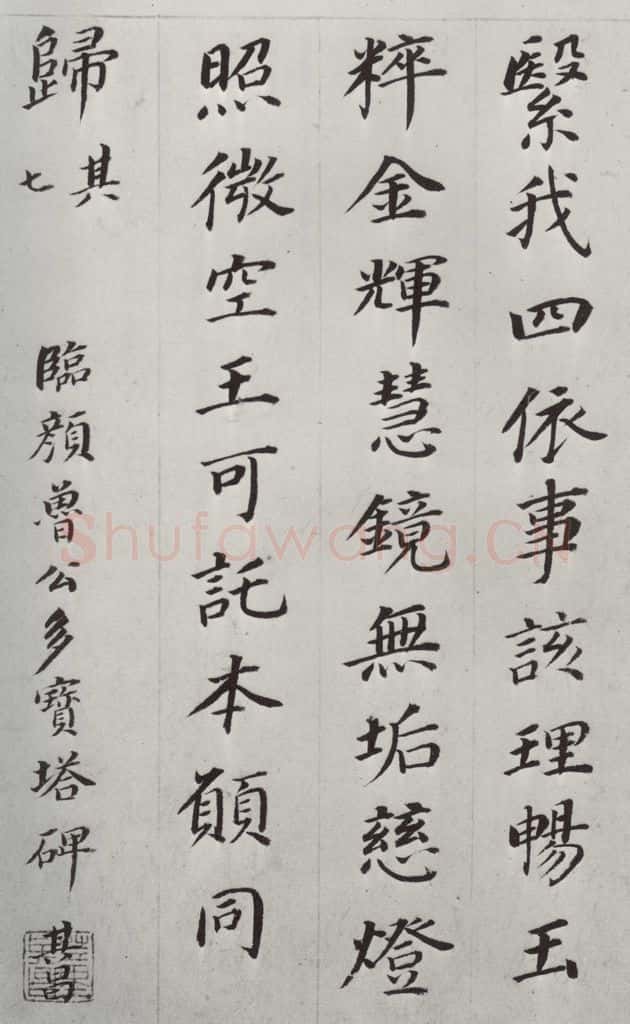 緊我四依事該理暢玉
粹金輝慧鏡無垢慈燈
照微空王可託本願同
歸 其七
臨顏魯公多寶塔碑 其昌
Shufawang.CN